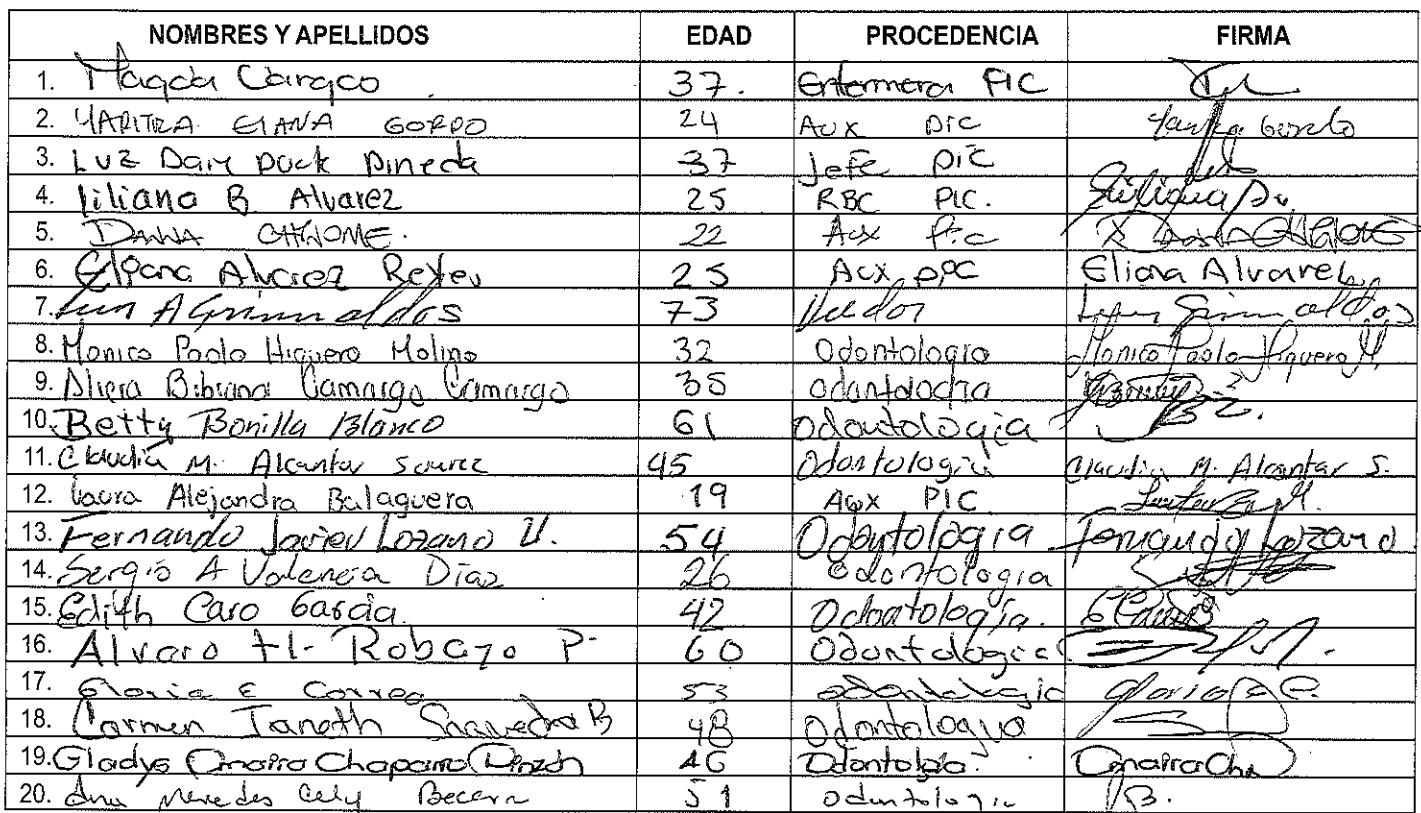 NOMBRES Y APELLIDOS EDAD PROCEDENCIA FIRMA
1. Magda Carga co 37. Enfermera PIC
2. YARITZA ELIANA GORDO 24 Aux PIC
3. Luz Dary Duck Pineda 37 jefe pic
4. liliana B Alvarez 25 RBC PIC.
5. DANNA CHINOME. 22 Aux Pic
6. Eliana Alvarez Reyes 25 Aux PIC Eliana Alvarez
7. Luis A Grimaldos 73 Veedor Luis Grimaldos
8. Monica Paola Higuera Molina 32 Odontologia Monica Paola Higuera M.
9. Bibiana Camargo Camargo 35 odontologia
10. Betty Bonilla Blanco 61 odontologia
11. Claudia M. Alcantar suarez 45 Odontologia Claudia M. Alcantar S.
12. Laura Alejandra Balaguera 19 Aux PIC
13. Fernando Javier Lozano V. 54 Odontologia Fernando Lozano
14. Sergio A Valencia Diaz 26 Odontologia
15. Edith Caro Garcia. 42 Odontologia.
16. Alvaro H- Robayo P- 60 Odontologia
17. Gloria E Correa 53 odontologia Gloria E C.
18. Carmen Janeth Saavedra B 48 Odontologia
19. Gladys Omaira Chaparro Pinzon 46 Odontologia. Omaira Cha
20. Ana Mercedes Cely Becerra 51 odontologia